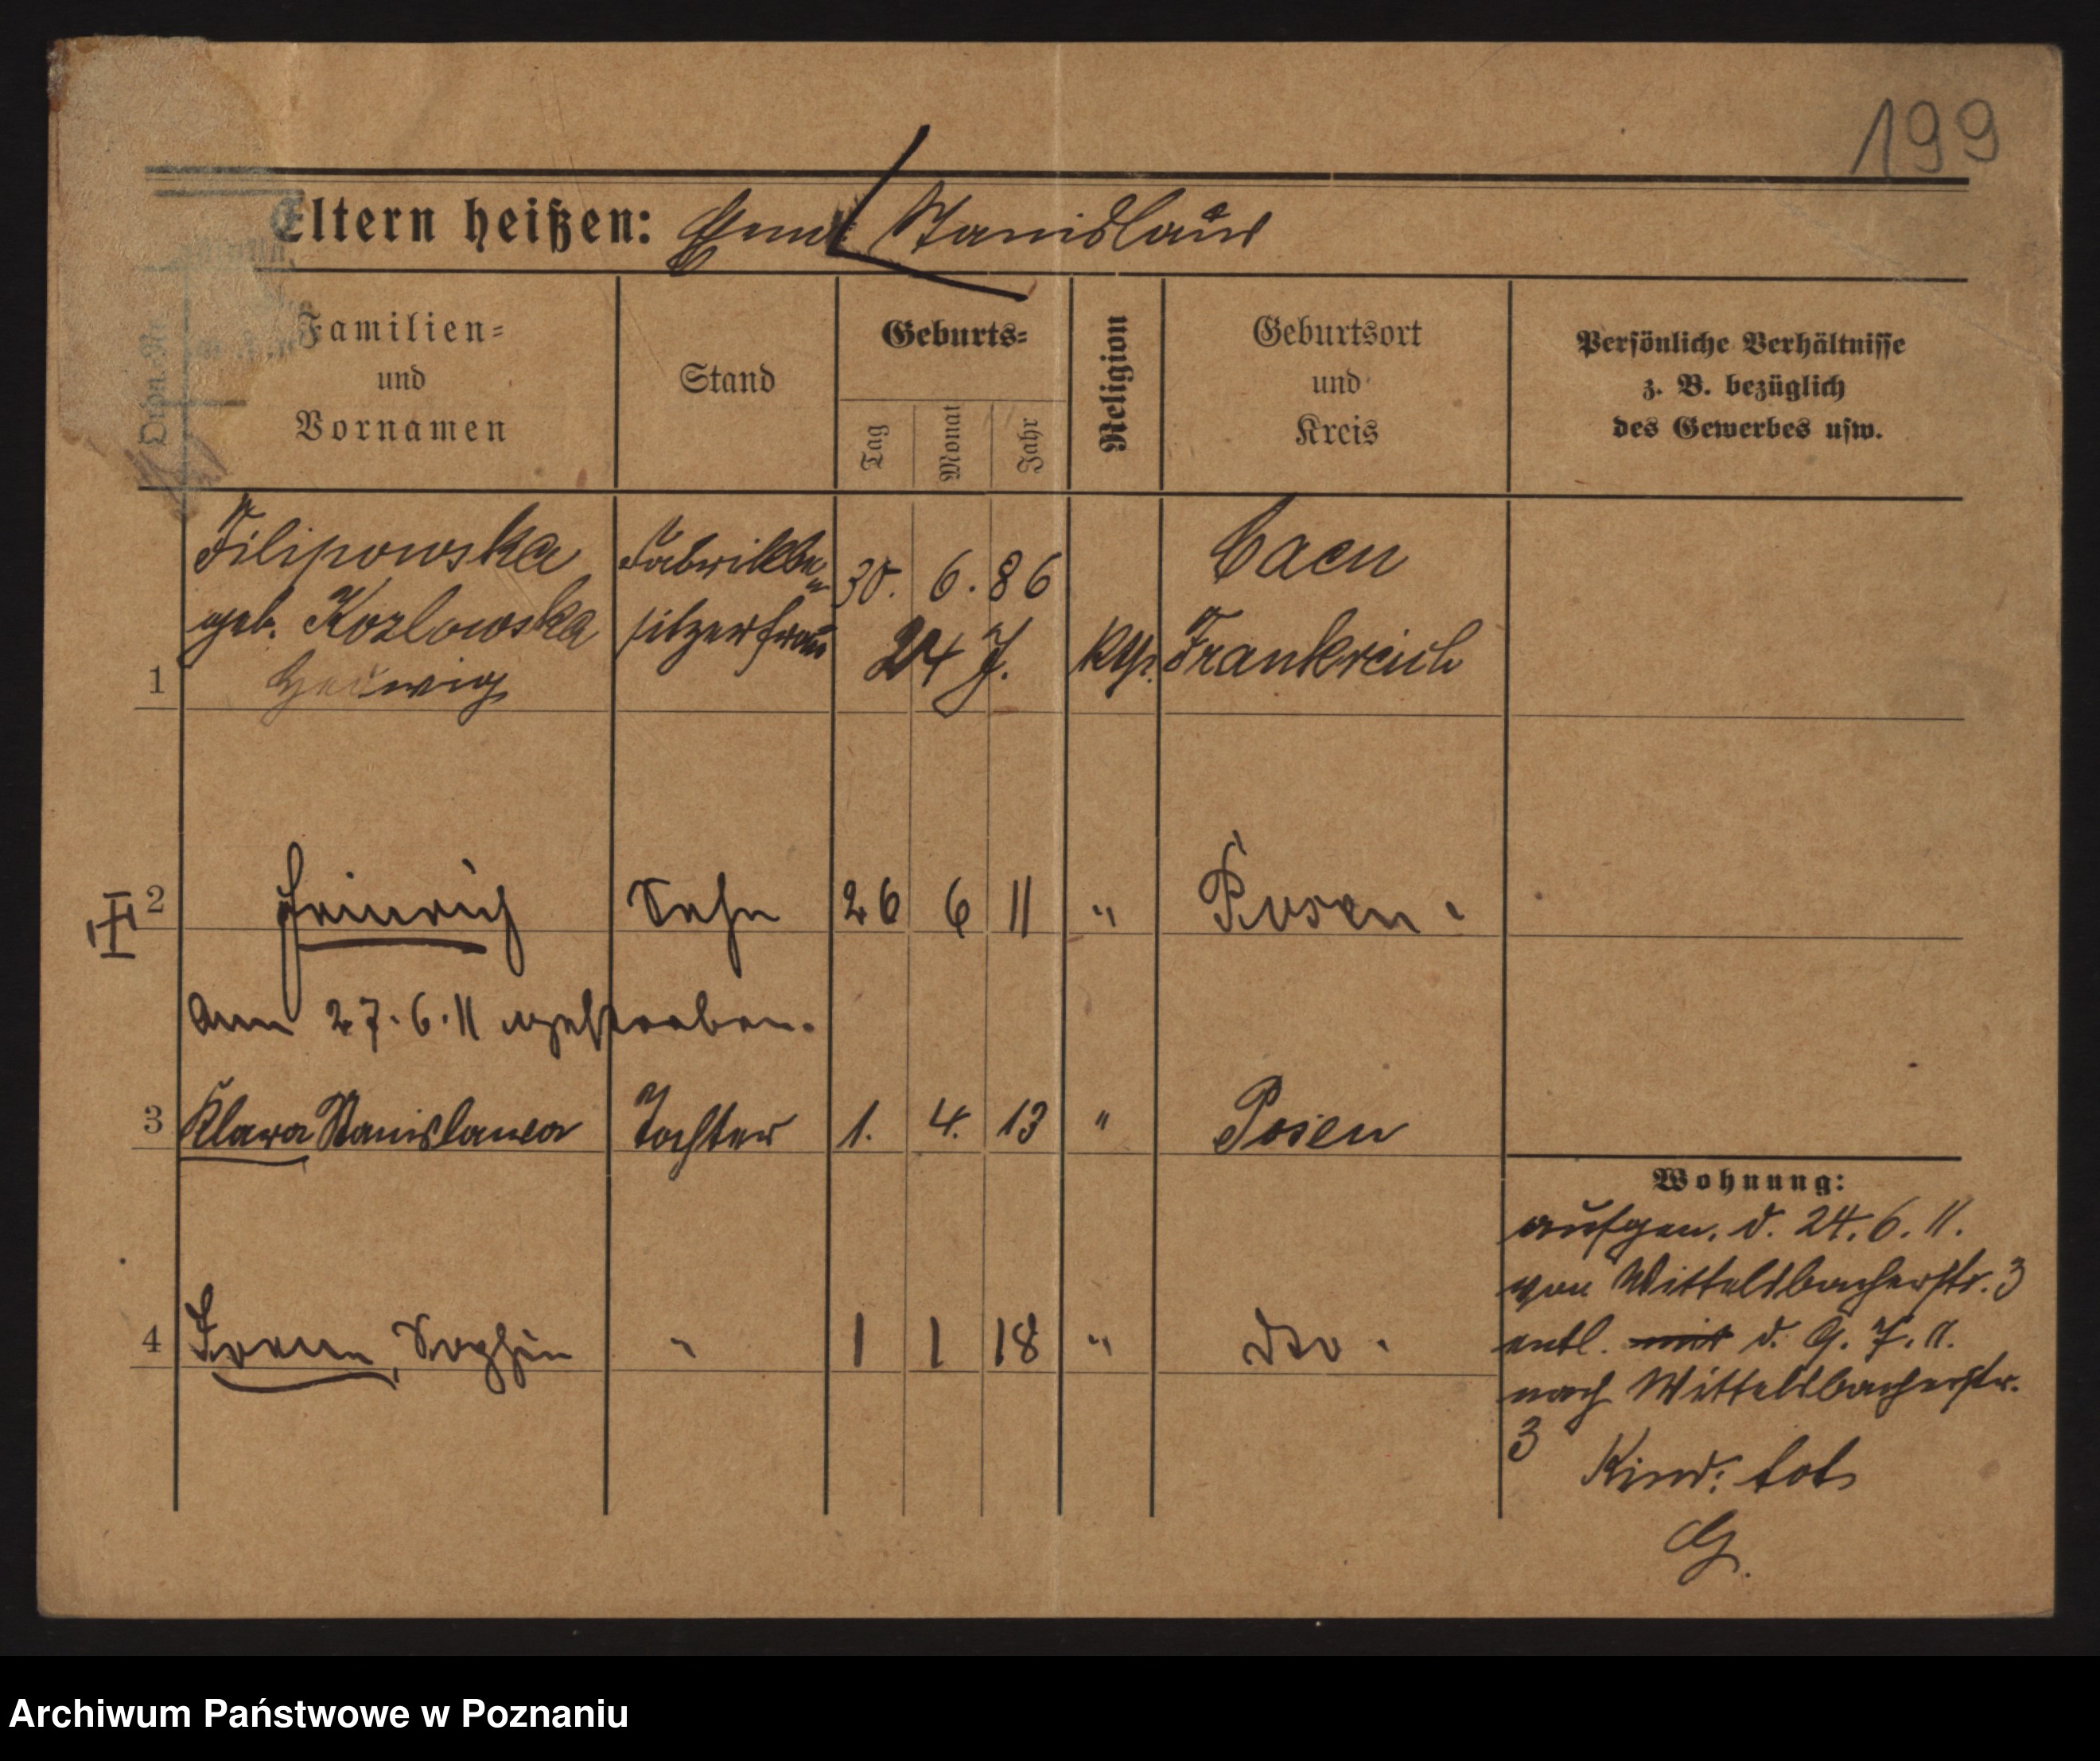 199
Eltern heißen: Stanislaus
Familien- und Vornamen
Stand
Geburts-
Tag
Monat
Jahr
Religion
Geburtsort und Kreis
Persönliche Verhältnisse z. B. bezüglich des Gewerbes usw.
Filipowska Fabrikbe- 30. 6. 86 Caen
geb. Kozlowska sitzerfrau 24 J. Frankreich
1 Hedwig
2 Heinrich Sohn 26 6 11 " Posen.
am 27.6.11 gestorben.
3 Klara Stanislawa Tochter 1. 4. 13 " Posen
Wohnung:
aufgen. d. 24.6.11.
von Wittelsbacherstr. 3
entl. mit d. 9.7.11.
nach Wittelsbacherstr.
3 Kind: tot
G.
4 Irene, Sophie " 1 1 18 " dto.
Archiwum Państwowe w Poznaniu